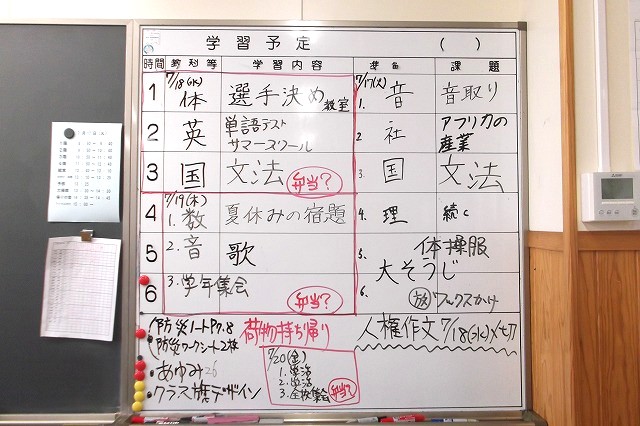 学習予定 ( )
時間 教科等 学習内容 準備 課題
7/18(水) 7/17(火)
1 体 選手決め 教室 1. 音 音取り
2 英 単語テスト
サマースクール
2 社 アフリカの
産業
3 国 文法 弁当? 3. 国 文法
7/19(木)
4 1. 数 夏休みの宿題 4. 理 続く
5 2. 音 歌 5. 体操服
大そうじ
6 3. 学年集会 弁当? 6. 放 ワックスかけ
防災ノートP7.8
防災ワークシート2枚
・あゆみ26
・クラス旗デザイン
荷物持ち帰り
7/20(金)
1.
2.
3. 全校集会 弁当?
人権作文 7/18(水)〆切